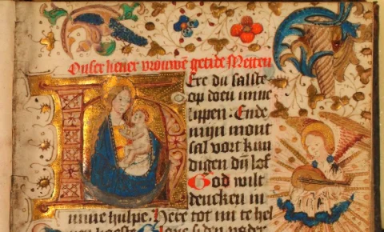 Onser lieuer vrouwen getide Metten
Ere du salste
op doen mine
lippen: Ende
mijn mont
sal vort kun
digen dijn lof
God wilt
dencken in
mine hulpe. Here tot mi te hel